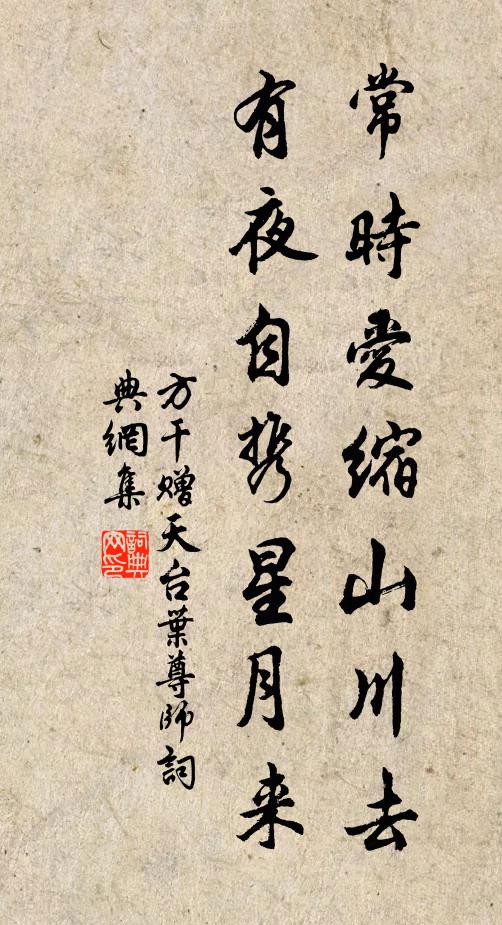 常時愛縮山川去
有夜自携星月来
方干贈天台葉尊師詞
典網集
詞典網印